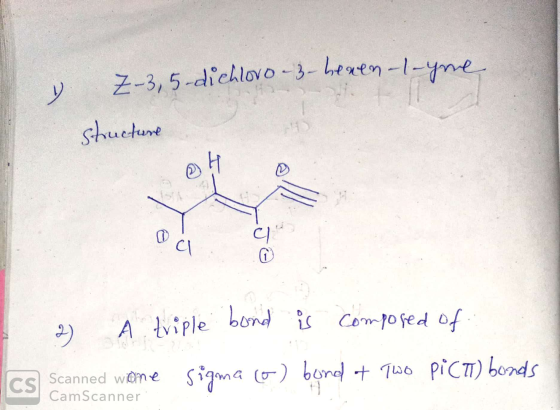 1) Z-3,5-dichloro-3-hexen-1-yne
structure
② H ②
① Cl Cl
①
2) A triple bond is composed of
one sigma (σ) bond + Two Pi(π) bonds
CS Scanned with
CamScanner